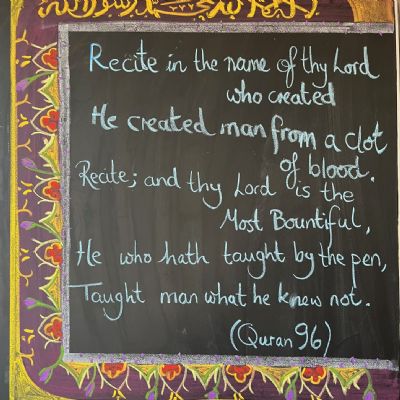 Recite in the name of thy Lord
who created
He created man from a clot
of blood.
Recite; and thy Lord is the
Most Bountiful,
He who hath taught by the pen,
Taught man what he knew not.
(Quran 96)